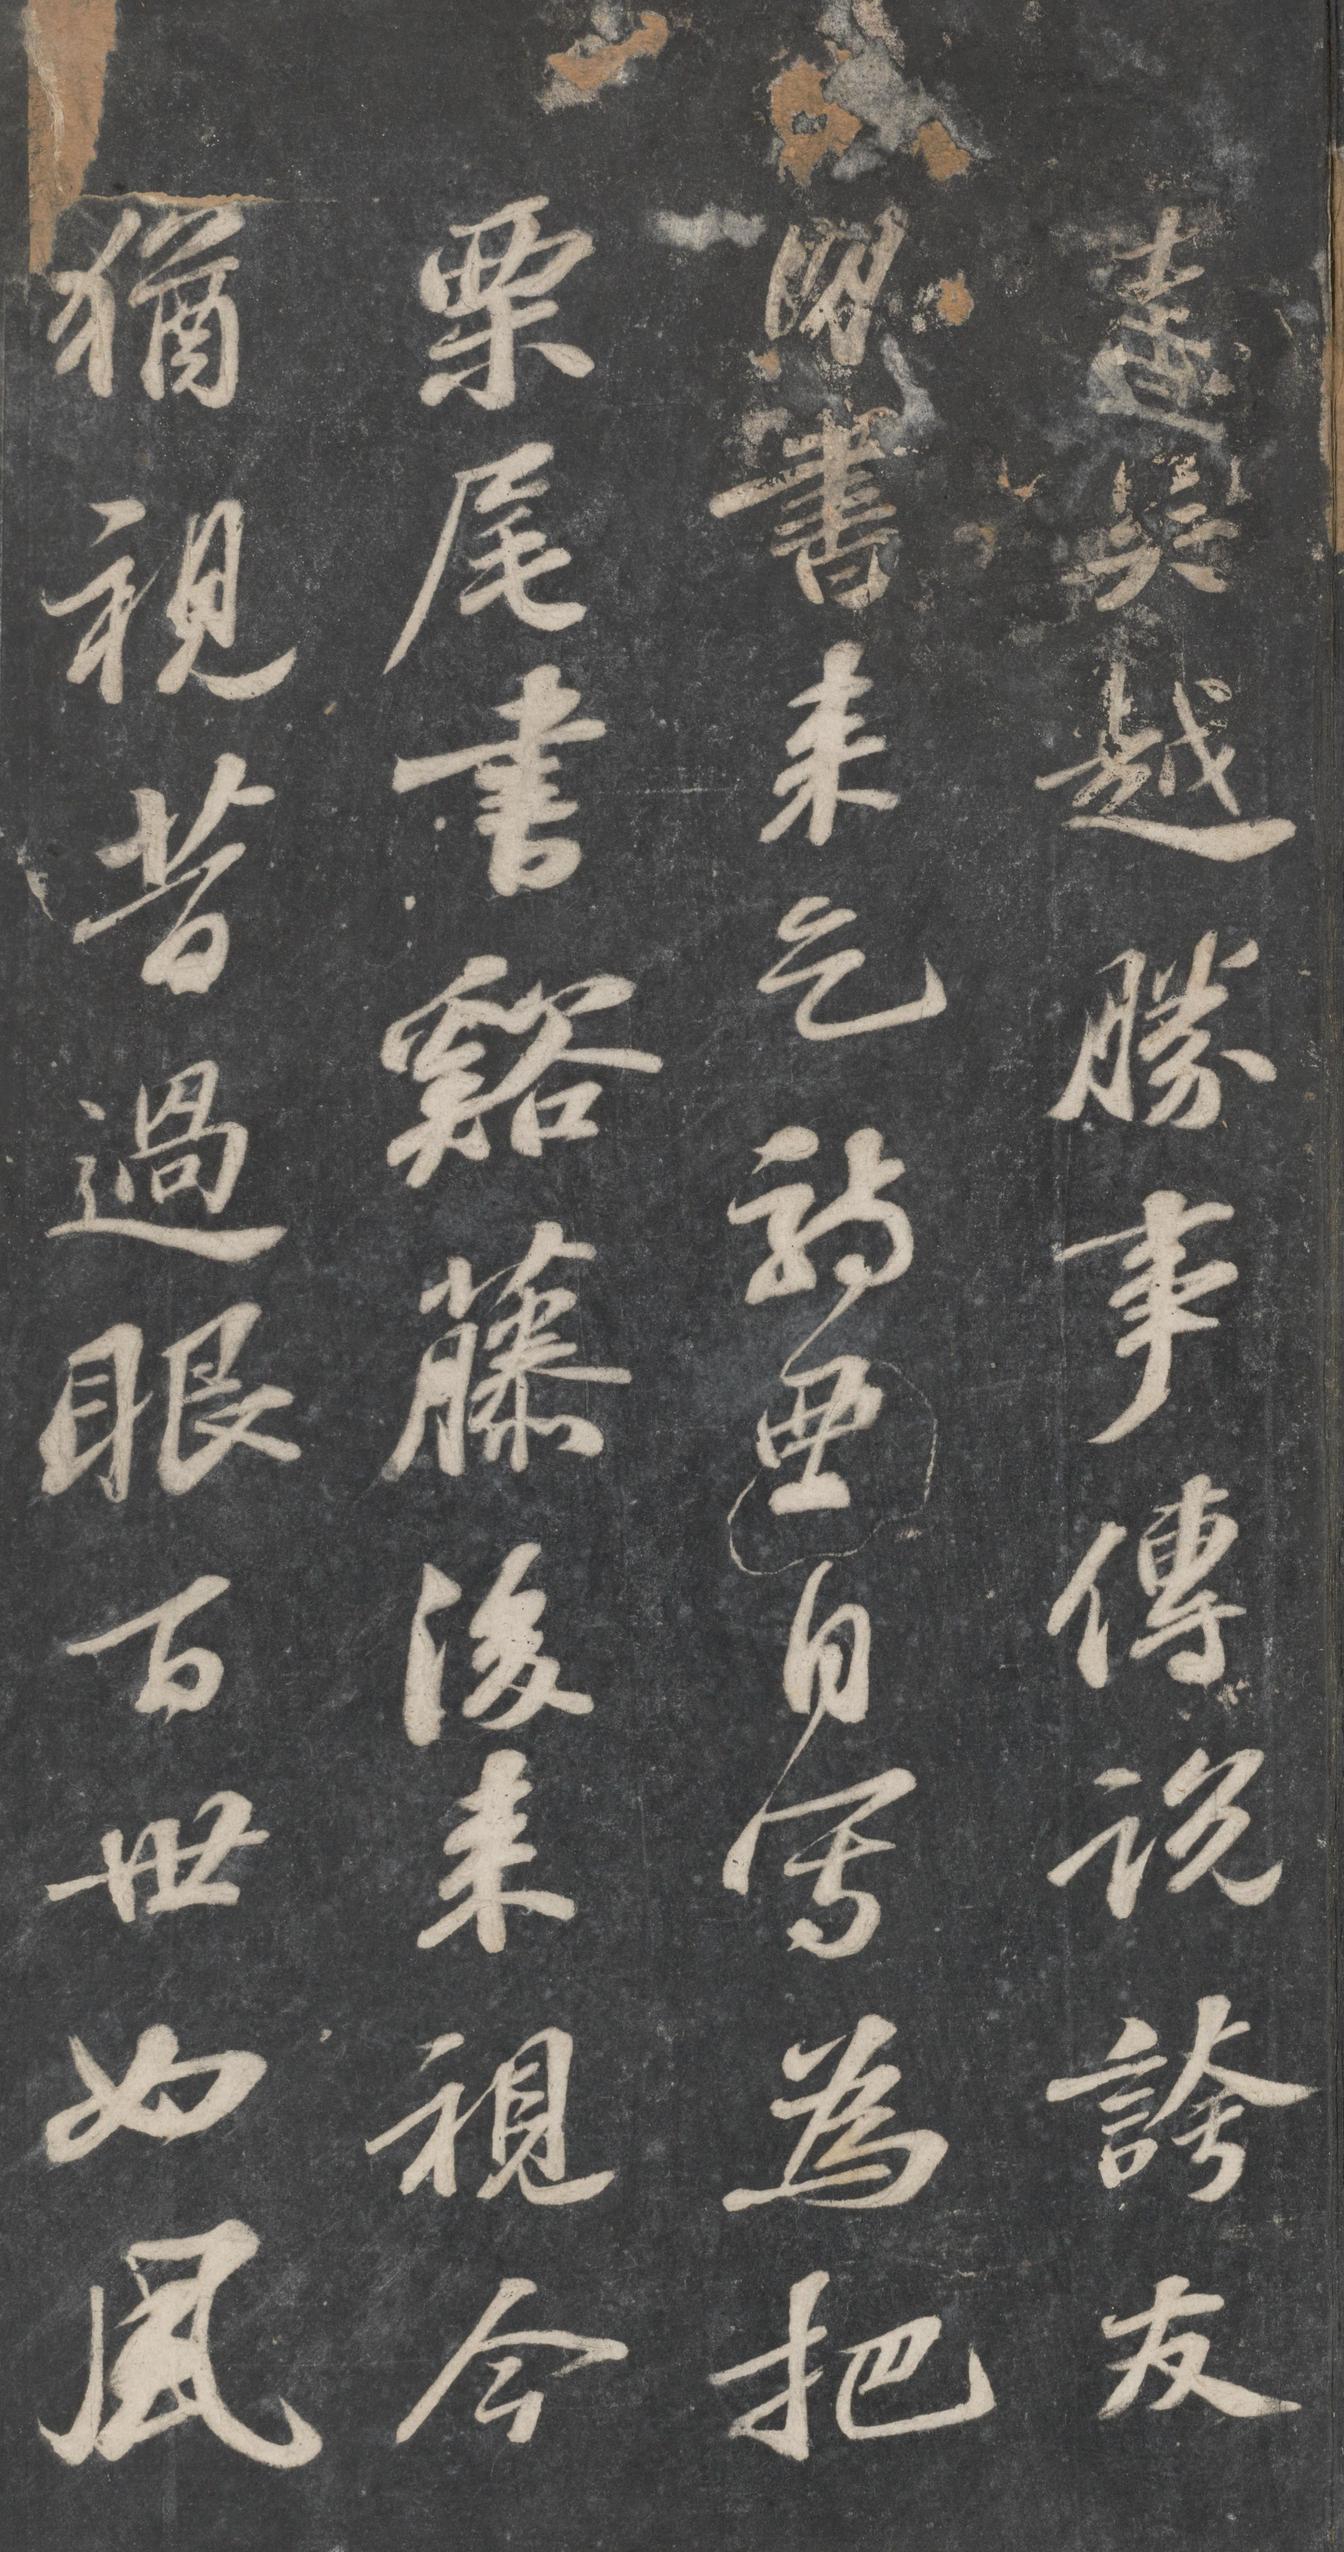 吳越勝事傳說誇友
朋書来乞詩要自寫為把
栗尾書谿藤後来視今
猶視昔過眼百世如風